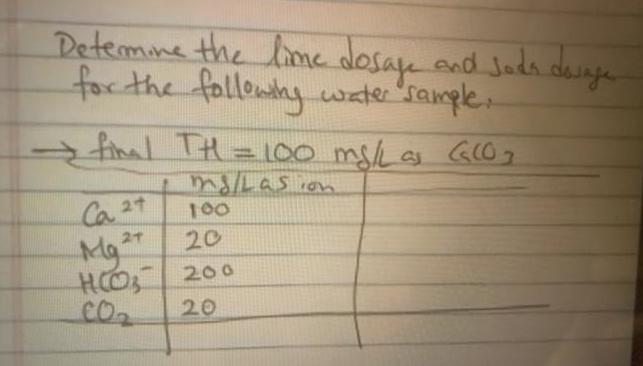 Determine the lime dosage and soda dosage
for the following water sample:
→ final TH = 100 mg/L as CaCO3
mg/L as ion
Ca2+ 100
Mg2+ 20
HCO3- 200
CO2 20